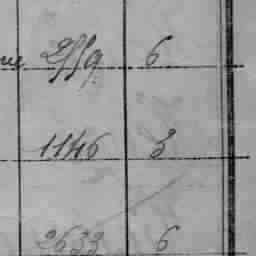 2559 6
1146 3
2633 6